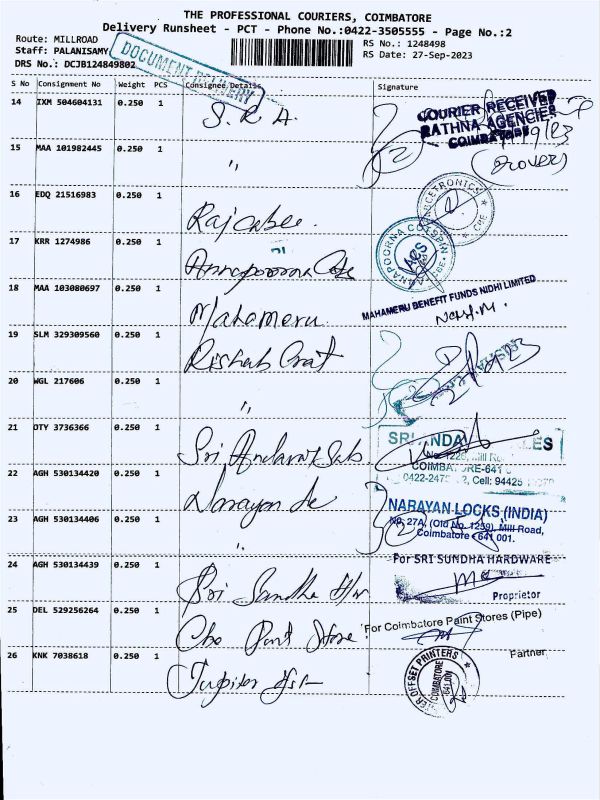 THE PROFESSIONAL COURIERS, COIMBATORE
Delivery Runsheet - PCT - Phone No.:0422-3505555 - Page No.:2
Route: MILLROAD
Staff: PALANISAMY
DRS No.: DCJB124849802
RS No.: 1248498
RS Date: 27-Sep-2023
DOCUMENT DELIVERY
S No Consignment No Weight PCS Consignee Details Signature
14 IXM 504604131 0.250 1 S.R.A.
COURIER RECEIVED
RATHNA AGENCIES
COIMBATORE
15 MAA 101982445 0.250 1 "
16 EDQ 21516983 0.250 1 Rajcubee.
17 KRR 1274986 0.250 1 Annapoorna
ANNAPOORNA COTSPIN
ACS
18 MAA 103080697 0.250 1 Mahameru
MAHAMERU BENEFIT FUNDS NIDHI LIMITED
19 SLM 329309560 0.250 1 Rishab
20 WGL 217606 0.250 1 "
21 OTY 3736366 0.250 1 Sri Andavar
SRI ANDA ES
COIMBA RE-641
0422-247 2, Cell: 94425
22 AGH 530134420 0.250 1 Narayan
NARAYAN LOCKS (INDIA)
No. 27A, (Old No. 1259), Mill Road,
Coimbatore - 641 001.
23 AGH 530134406 0.250 1 "
24 AGH 530134439 0.250 1 Sri Sundha H/w
For SRI SUNDHA HARDWARE
Proprietor
25 DEL 529256264 0.250 1 Cbe Paint Store
For Coimbatore Paint Stores (Pipe)
Partner
26 KNK 7038618 0.250 1 Jupiter
ER OFFSET PRINTERS
COIMBATORE
641 001